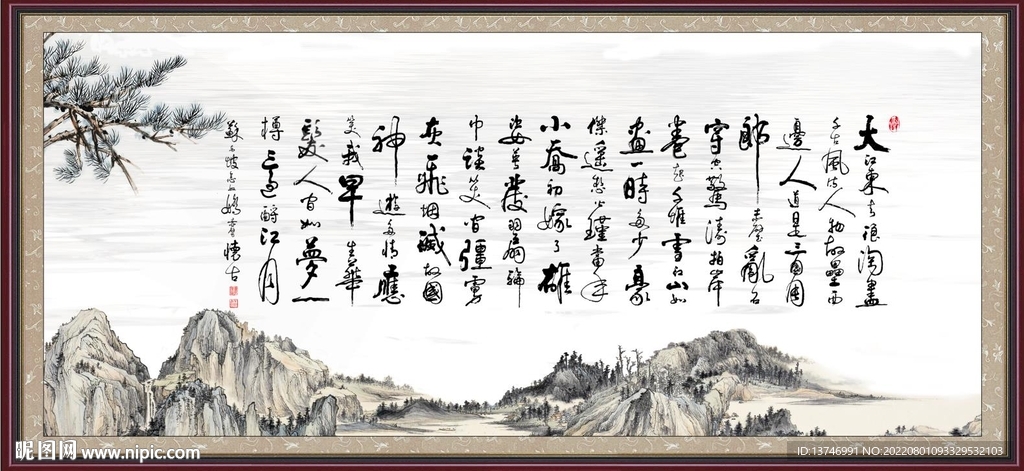 大江東去浪淘盡
千古風流人物故壘西
邊人道是三國周
郎赤壁亂石
穿空驚濤拍岸
卷起千堆雪江山如
畫一時多少豪
傑遙想公瑾當年
小喬初嫁了雄
姿英發羽扇綸
巾談笑間彊虜
灰飛烟滅故國
神遊多情應
笑我早生華
髮人間如夢一
樽還酹江月
蘇东坡念奴嬌赤壁懷古
昵图网 www.nipic.com
ID:13746991 NO:20220801093329532103